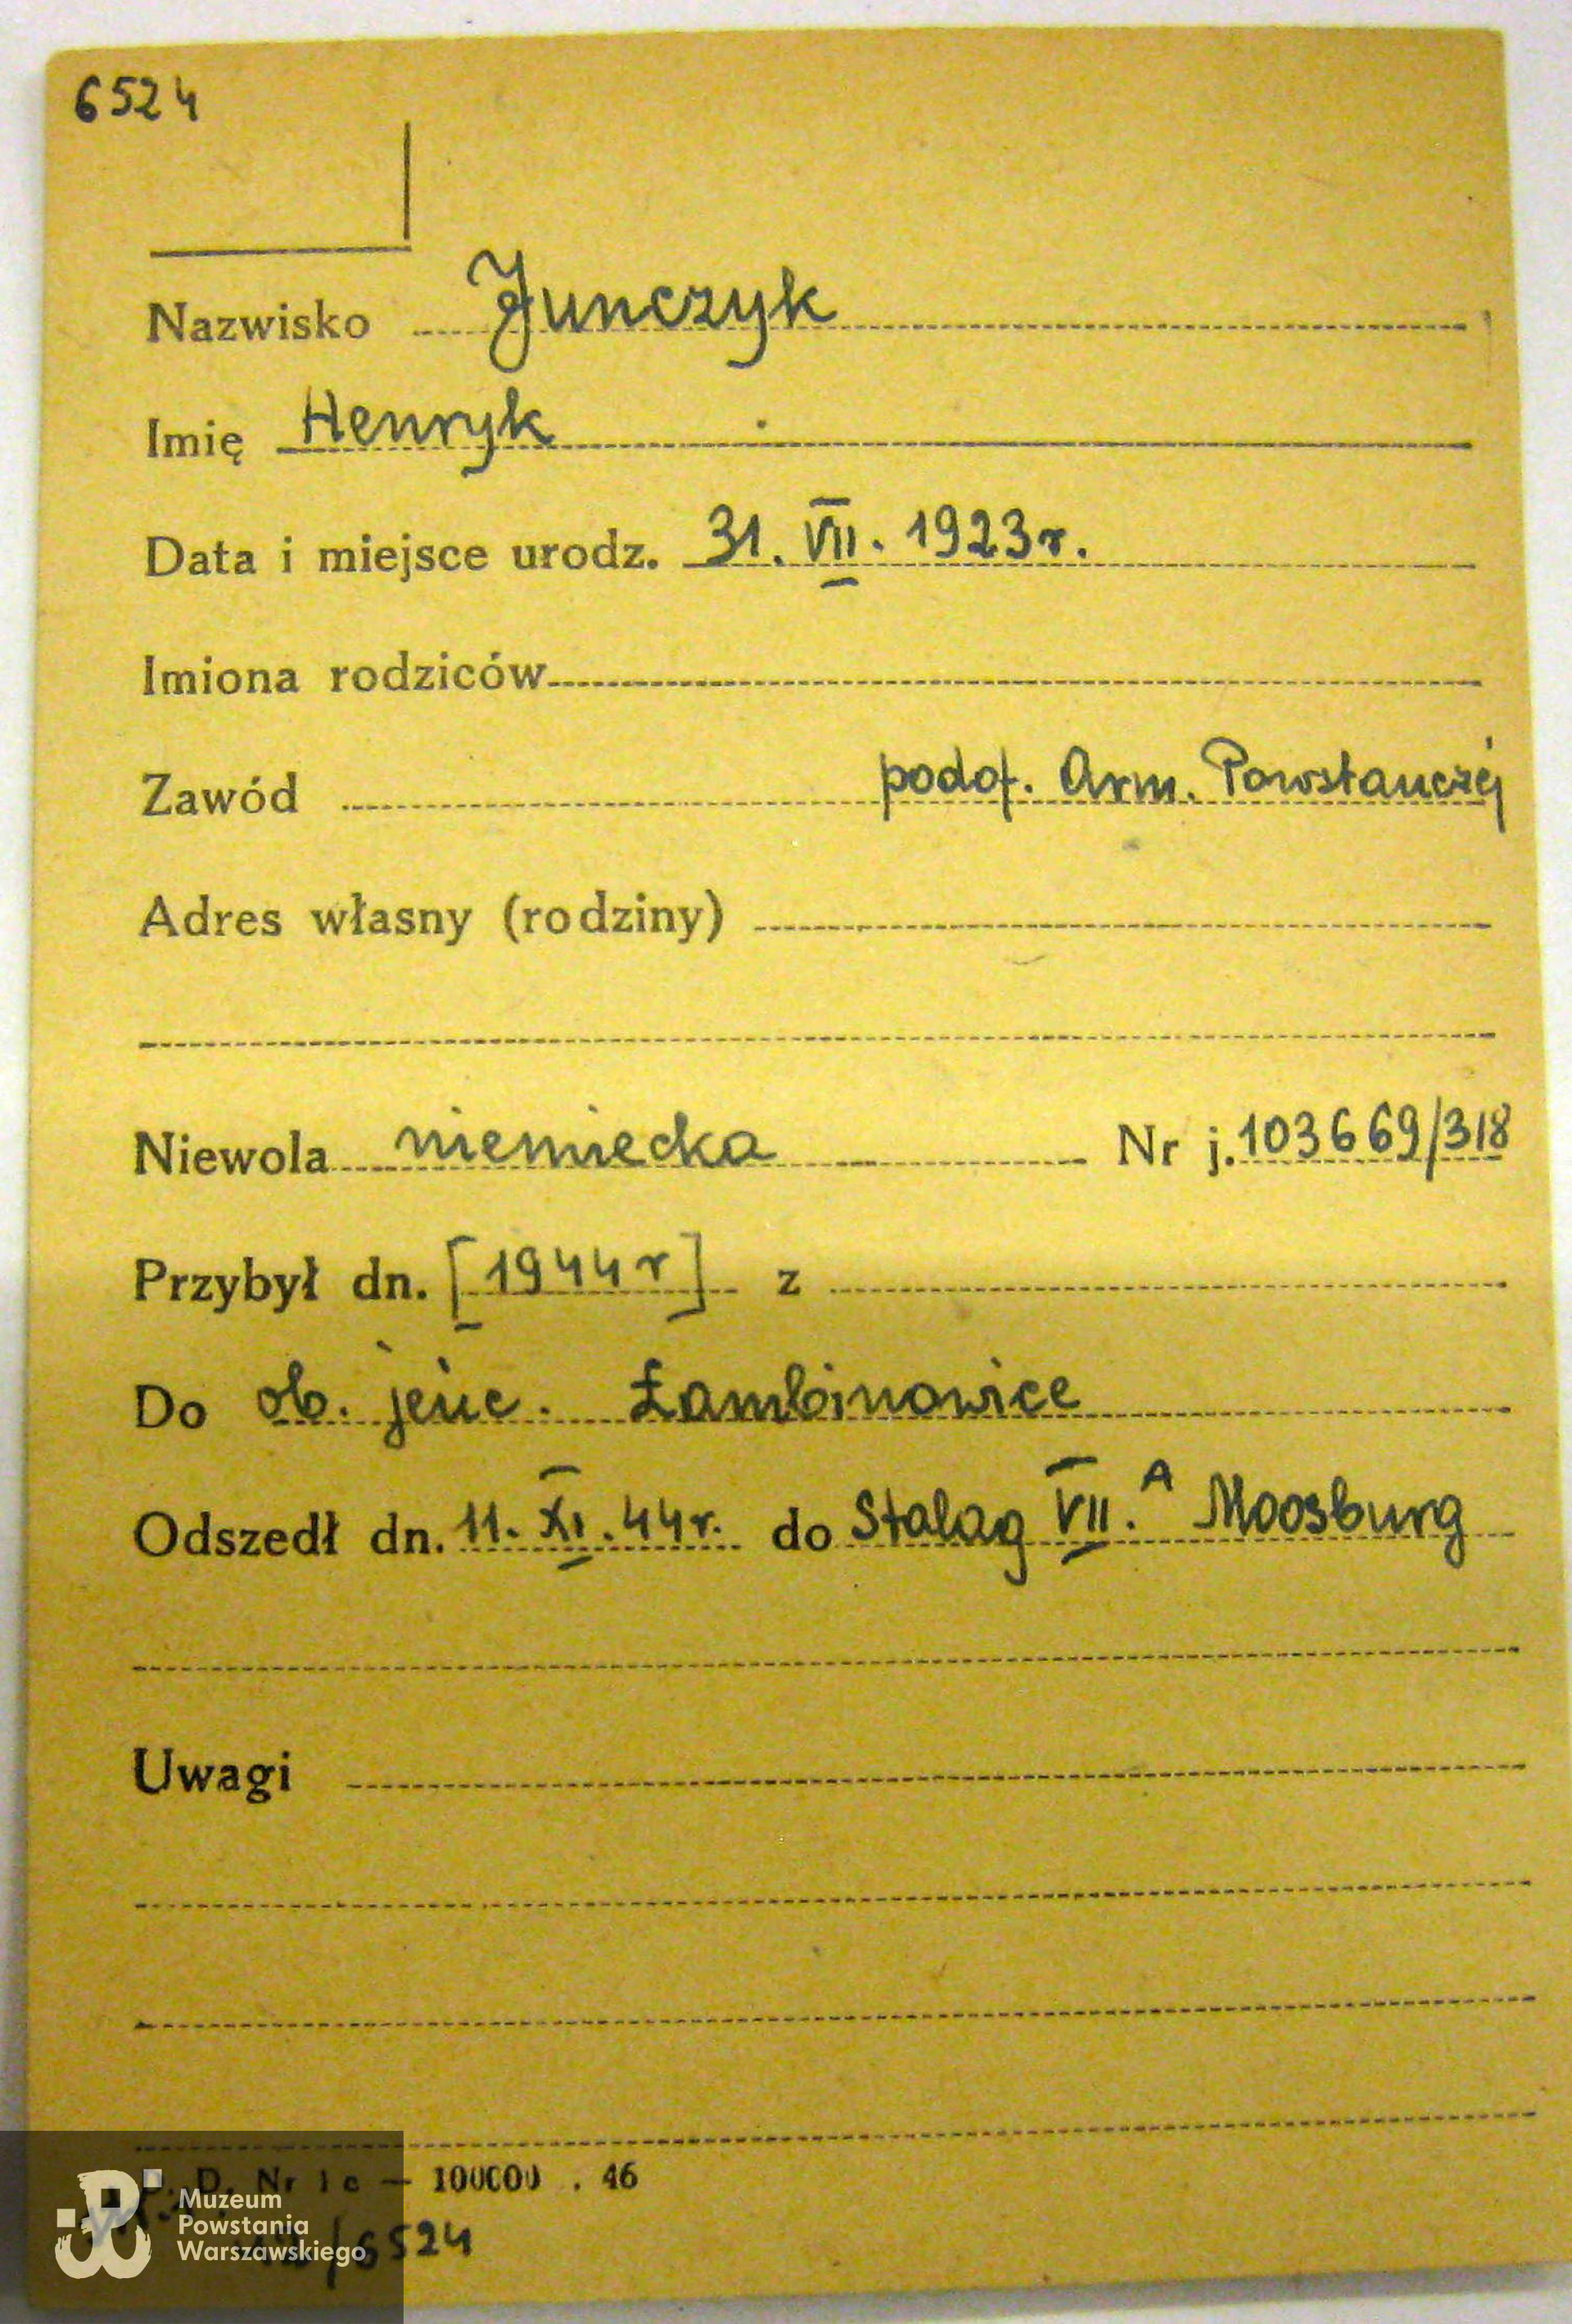 6524
Nazwisko Junczyk
Imię Henryk
Data i miejsce urodz. 31. VII. 1923r.
Imiona rodziców
Zawód podof. Arm. Powstańczej
Adres własny (rodziny)
Niewola niemiecka Nr j. 103669/318
Przybył dn. [1944r] z
Do ob. jeńc. Łambinowice
Odszedł dn. 11. XI. 44r. do Stalag VII. A Moosburg
Uwagi
D. Nr 1c — 100000 . 46
/6524
Muzeum
Powstania
Warszawskiego